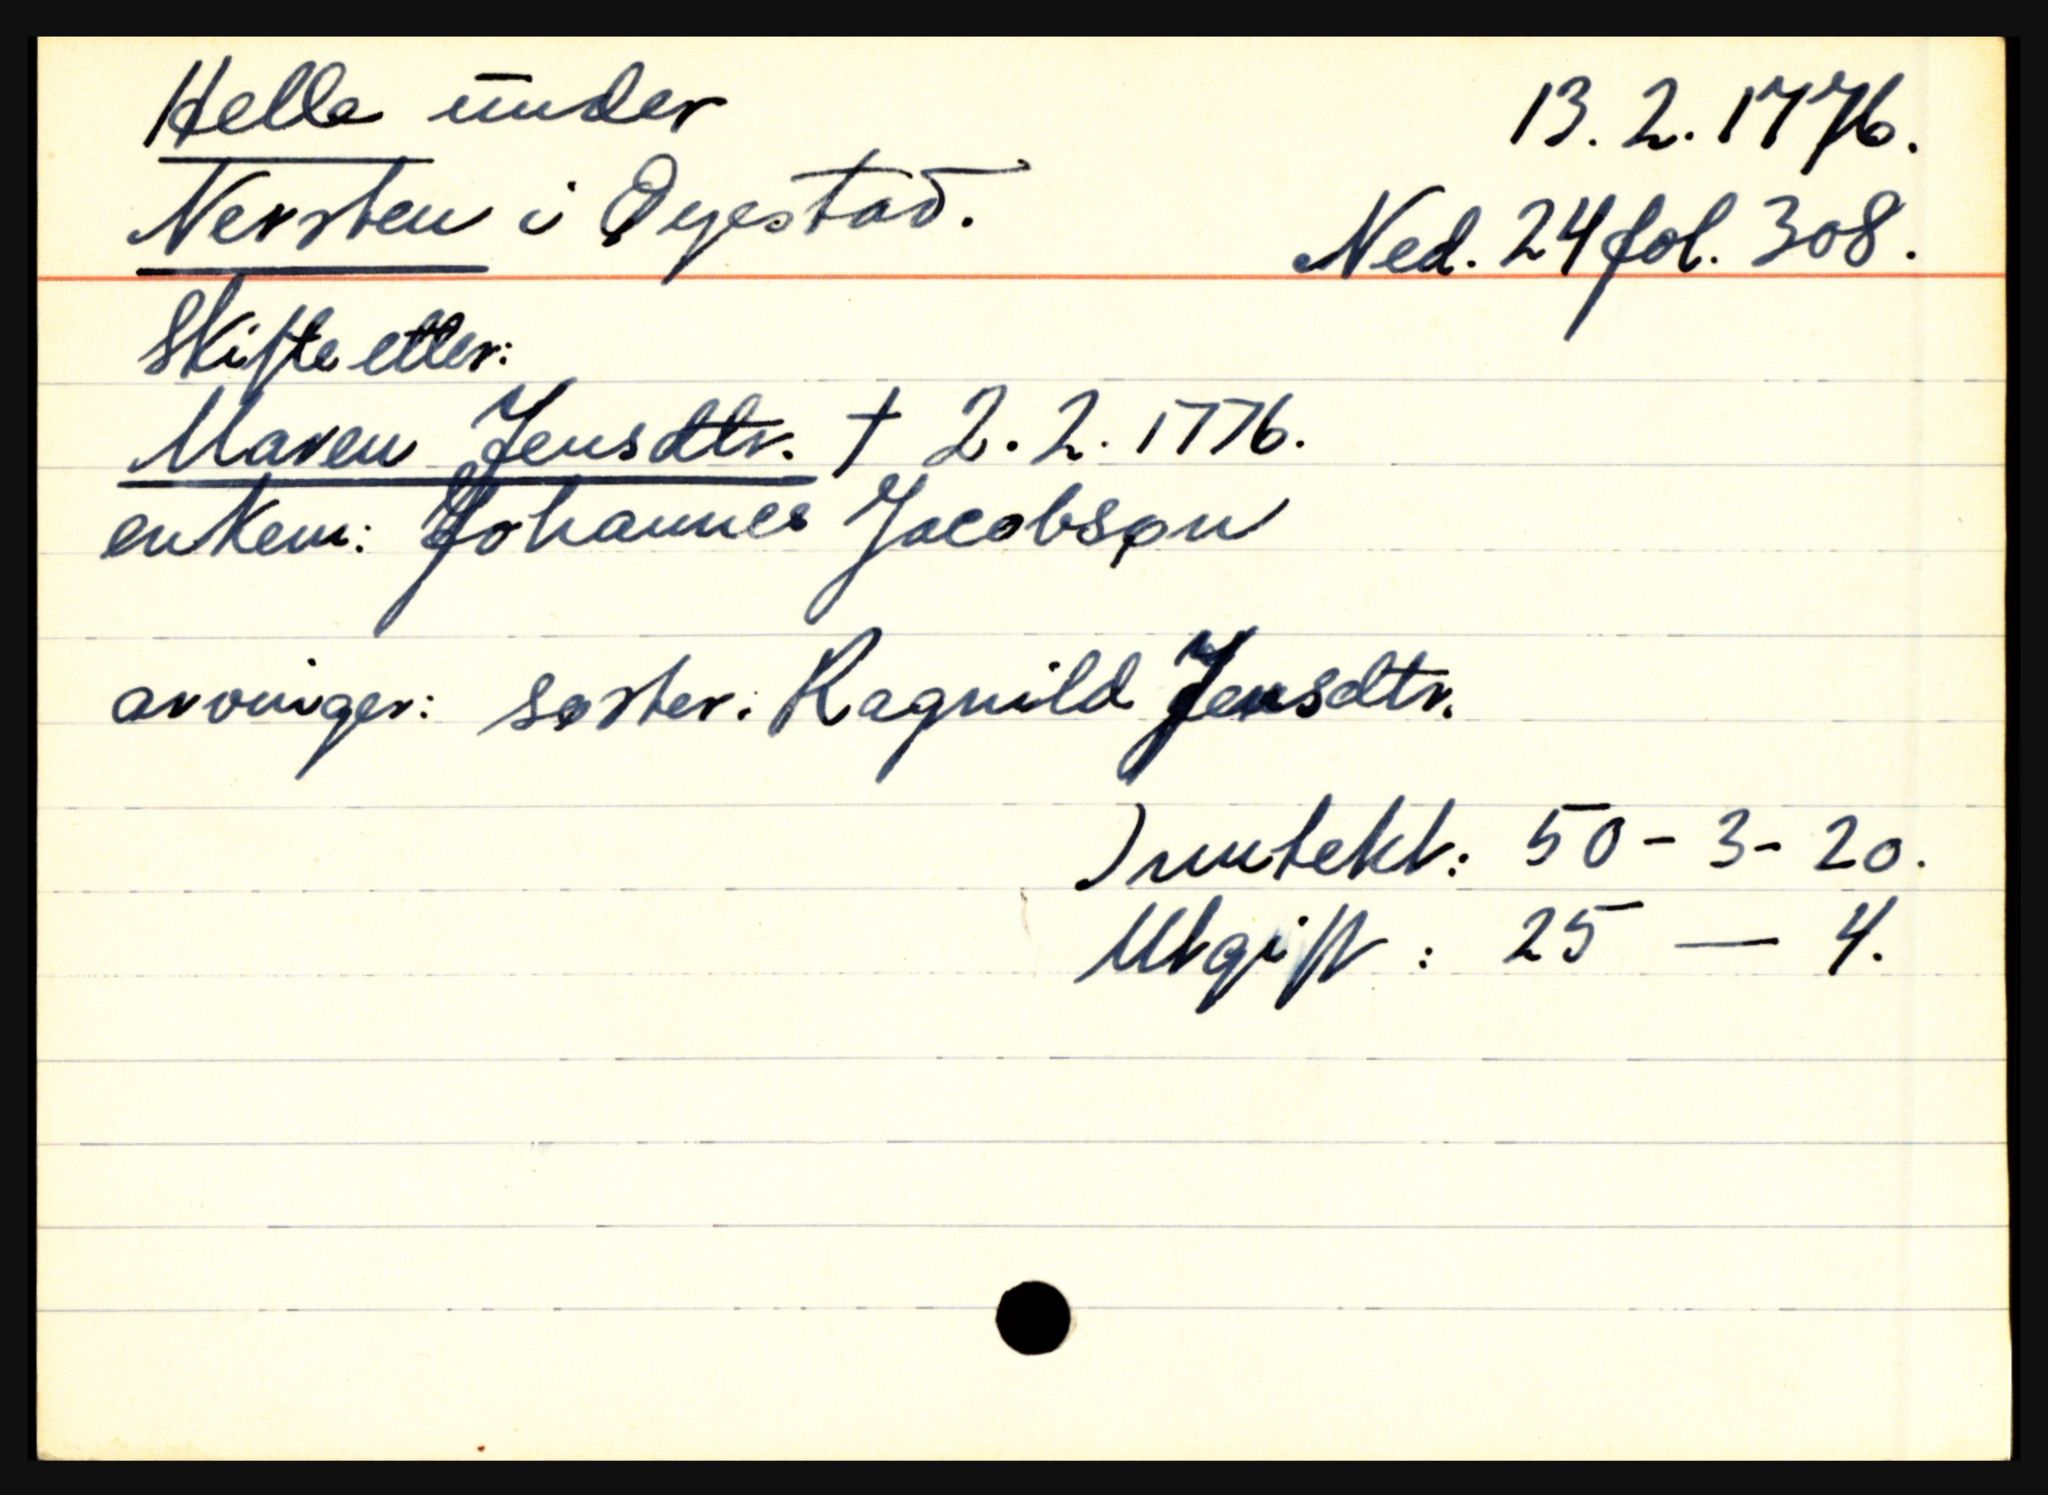 Helle under
Nersten i Øyestad.
13. 2. 1776.
Ned. 24 fol. 308.
Skifte etter:
Maren Jensdtr. † 2. 2. 1776.
enkem: Johannes Jacobsøn
arvinger: søster: Ragnild Jensdtr.
Inntekt: 50 - 3 - 20.
Utgift : 25 — 4.